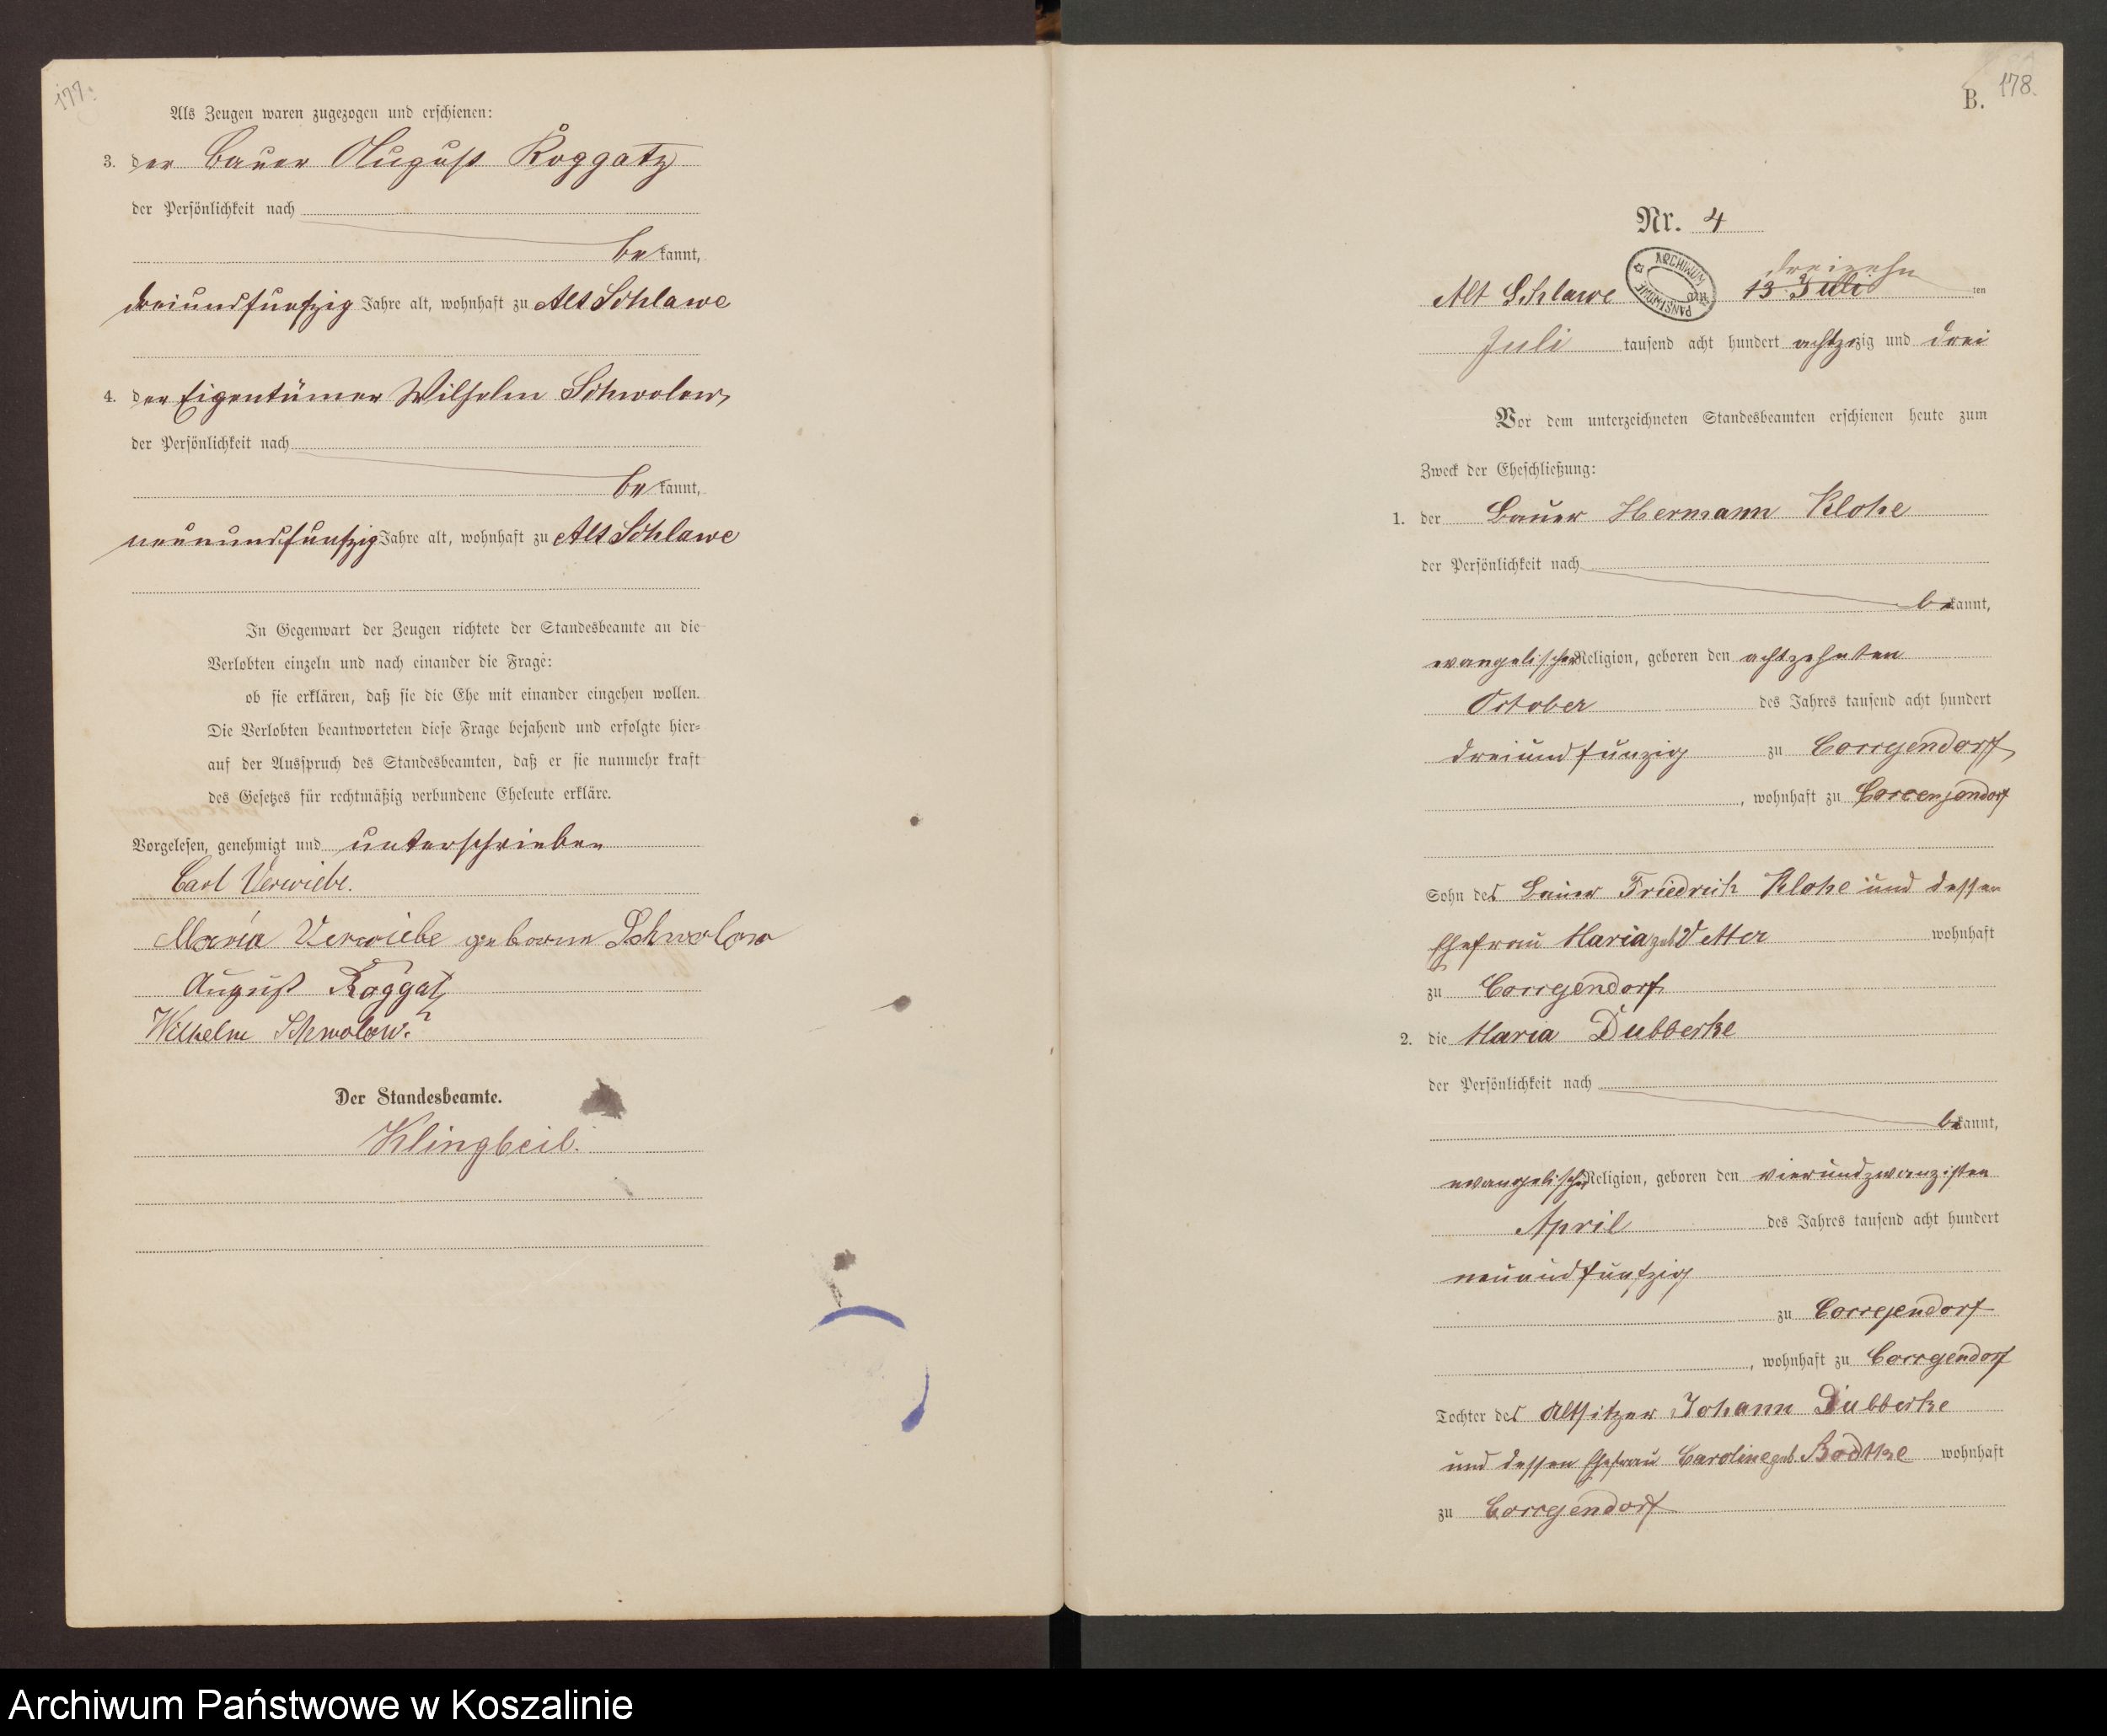 177.
Als Zeugen waren zugezogen und erschienen:
3. der Bauer August Roggatz
der Persönlichkeit nach
bekannt,
dreiundfunfzig Jahre alt, wohnhaft zu Alt Schlawe
4. der Eigentümer Wilhelm Schwolow,
der Persönlichkeit nach
bekannt,
neunundfunfzig Jahre alt, wohnhaft zu Alt Schlawe
In Gegenwart der Zeugen richtete der Standesbeamte an die
Verlobten einzeln und nach einander die Frage:
ob sie erklären, daß sie die Ehe mit einander eingehen wollen.
Die Verlobten beantworteten diese Frage bejahend und erfolgte hier-
auf der Ausspruch des Standesbeamten, daß er sie nunmehr kraft
des Gesetzes für rechtmäßig verbundene Eheleute erkläre.
Vorgelesen, genehmigt und unterschrieben
Carl Verwiebe.
Maria Verwiebe geborne Schwolow
August Roggatz
Wilhelm Schwolow.
Der Standesbeamte.
Klingbeil.
178.
B.
Nr. 4
dreizehn
Alt Schlawe am 13 Juli ten
Juli tausend acht hundert achtzig und drei
Vor dem unterzeichneten Standesbeamten erschienen heute zum
Zweck der Eheschließung:
1. der Bauer Hermann Klohe
der Persönlichkeit nach
bekannt,
evangelischer Religion, geboren den achtzehnten
October des Jahres tausend acht hundert
dreiundfunzig zu Correjendorf
, wohnhaft zu Correnjendorf
Sohn des Bauer Friedrich Klohe und dessen
Ehefrau Maria geb Vetter wohnhaft
zu Correjendorf
2. die Maria Dubberke
der Persönlichkeit nach
bekannt,
evangelischer Religion, geboren den vierundzwanzisten
April des Jahres tausend acht hundert
neunundfunfzig
zu Correjendorf
, wohnhaft zu Correjendorf
Tochter des Altsitzer Johann Dubberke
und dessen Ehefrau Caroline geb. Radtke wohnhaft
zu Correjendorf
ARCHIWUM PAŃSTWOWE
Archiwum Państwowe w Koszalinie